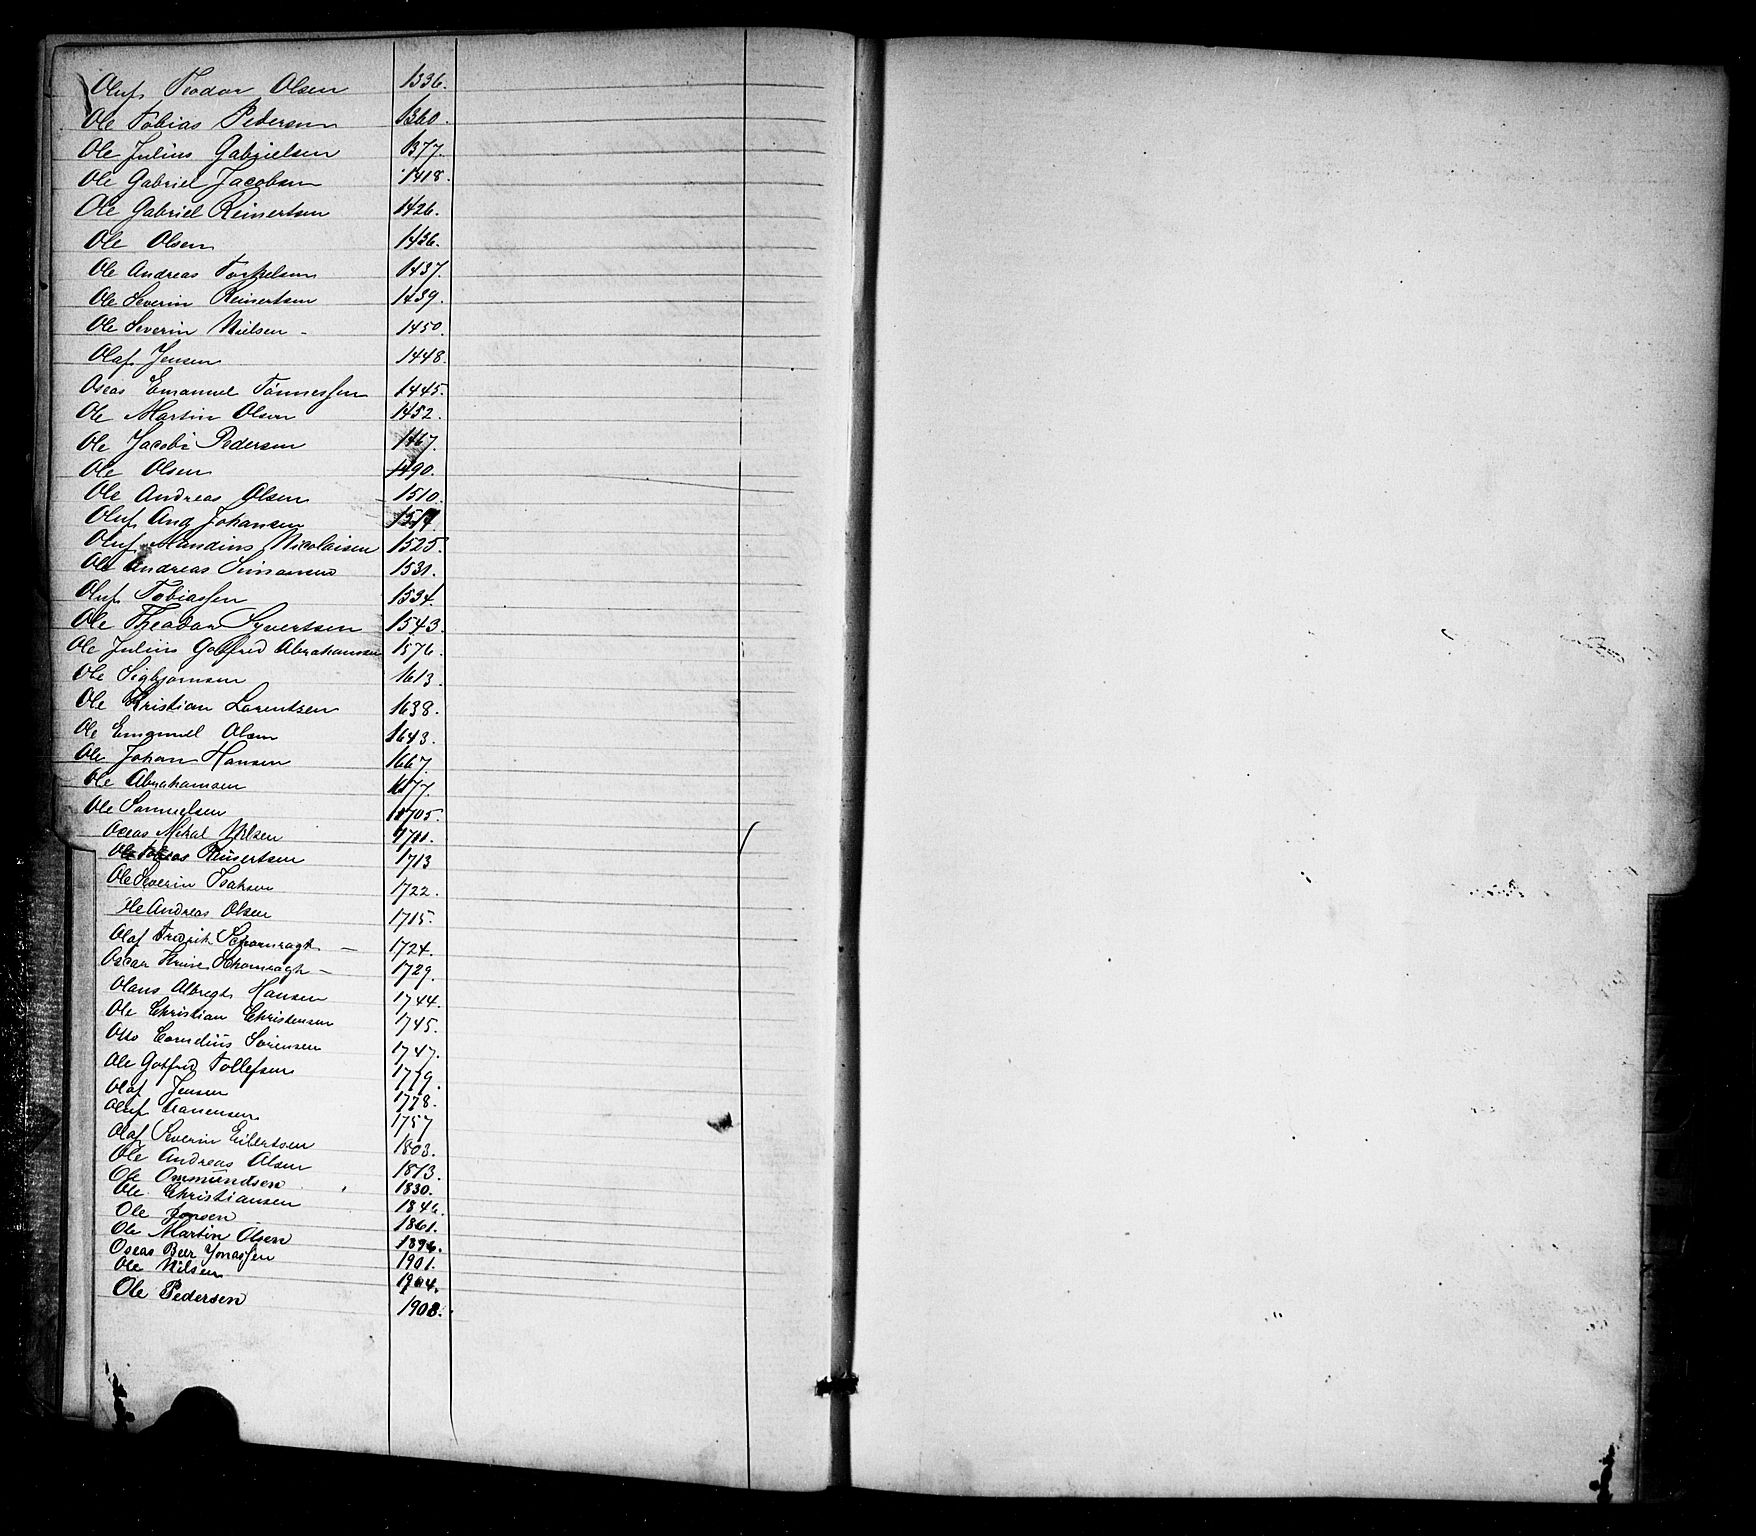 Oluf Teodor Olsen 1336.
Ole Tobias Pedersen 1360.
Ole Julius Gabrielsen 1377.
Ole Gabriel Jacobsen 1418.
Ole Gabriel Reinertsen 1426.
Ole Olsen 1436.
Ole Andreas Torkelsen 1437.
Ole Severin Reinertsen 1439.
Ole Severin Nielsen - 1450.
Olaf Jensen 1448.
Oseas Emanuel Tönnessen 1445.
Ole Martin Olsen 1452.
Ole Jacob Pedersen 1467.
Ole Olsen 1490.
Ole Andreas Olsen 1510.
Oluf Aug Johansen
Oluf Mandius Nicolaisen 1525.
Ole Andreas Simonsen 1531.
Oluf Tobiassen 1534.
Ole Theodor Syvertsen 1543.
Ole Julius Gotfred Abrahamsen 1576.
Ole Sigbjørnsen 1613.
Ole Kristian Lorentzen 1638.
Ole Emanuel Olsen 1643.
Ole Johan Hansen 1667.
Ole Abrahamsen 1677.
Ole Samuelsen 1705.
Oseas Mikal Nilsen 1711.
Ole Tobias Reinertsen 1713
Ole Severin Isaksen 1722.
Ole Andreas Olsen 1715.
Olaf Fredrik Schomragh - 1724.
Oscar Kruse Schomragh - 1729.
Olaus Albregt Hansen 1744.
Ole Christian Christensen 1745.
Otto Cornelius Sørensen 1747.
Ole Gotfred Tollefsen 1779.
Olaf Jensen 1778.
Oluf Aanensen 1757
Olaf Severin Eilertsen 1803.
Ole Andreas Olsen 1813.
Ole Ommundsen 1830.
Ole Christiansen 1846.
Ole Jonsen 1861.
Ole Martin Olsen 1896.
Oseas Beer Jonassen 1901.
Ole Nilsen 1904.
Ole Pedersen 1908.